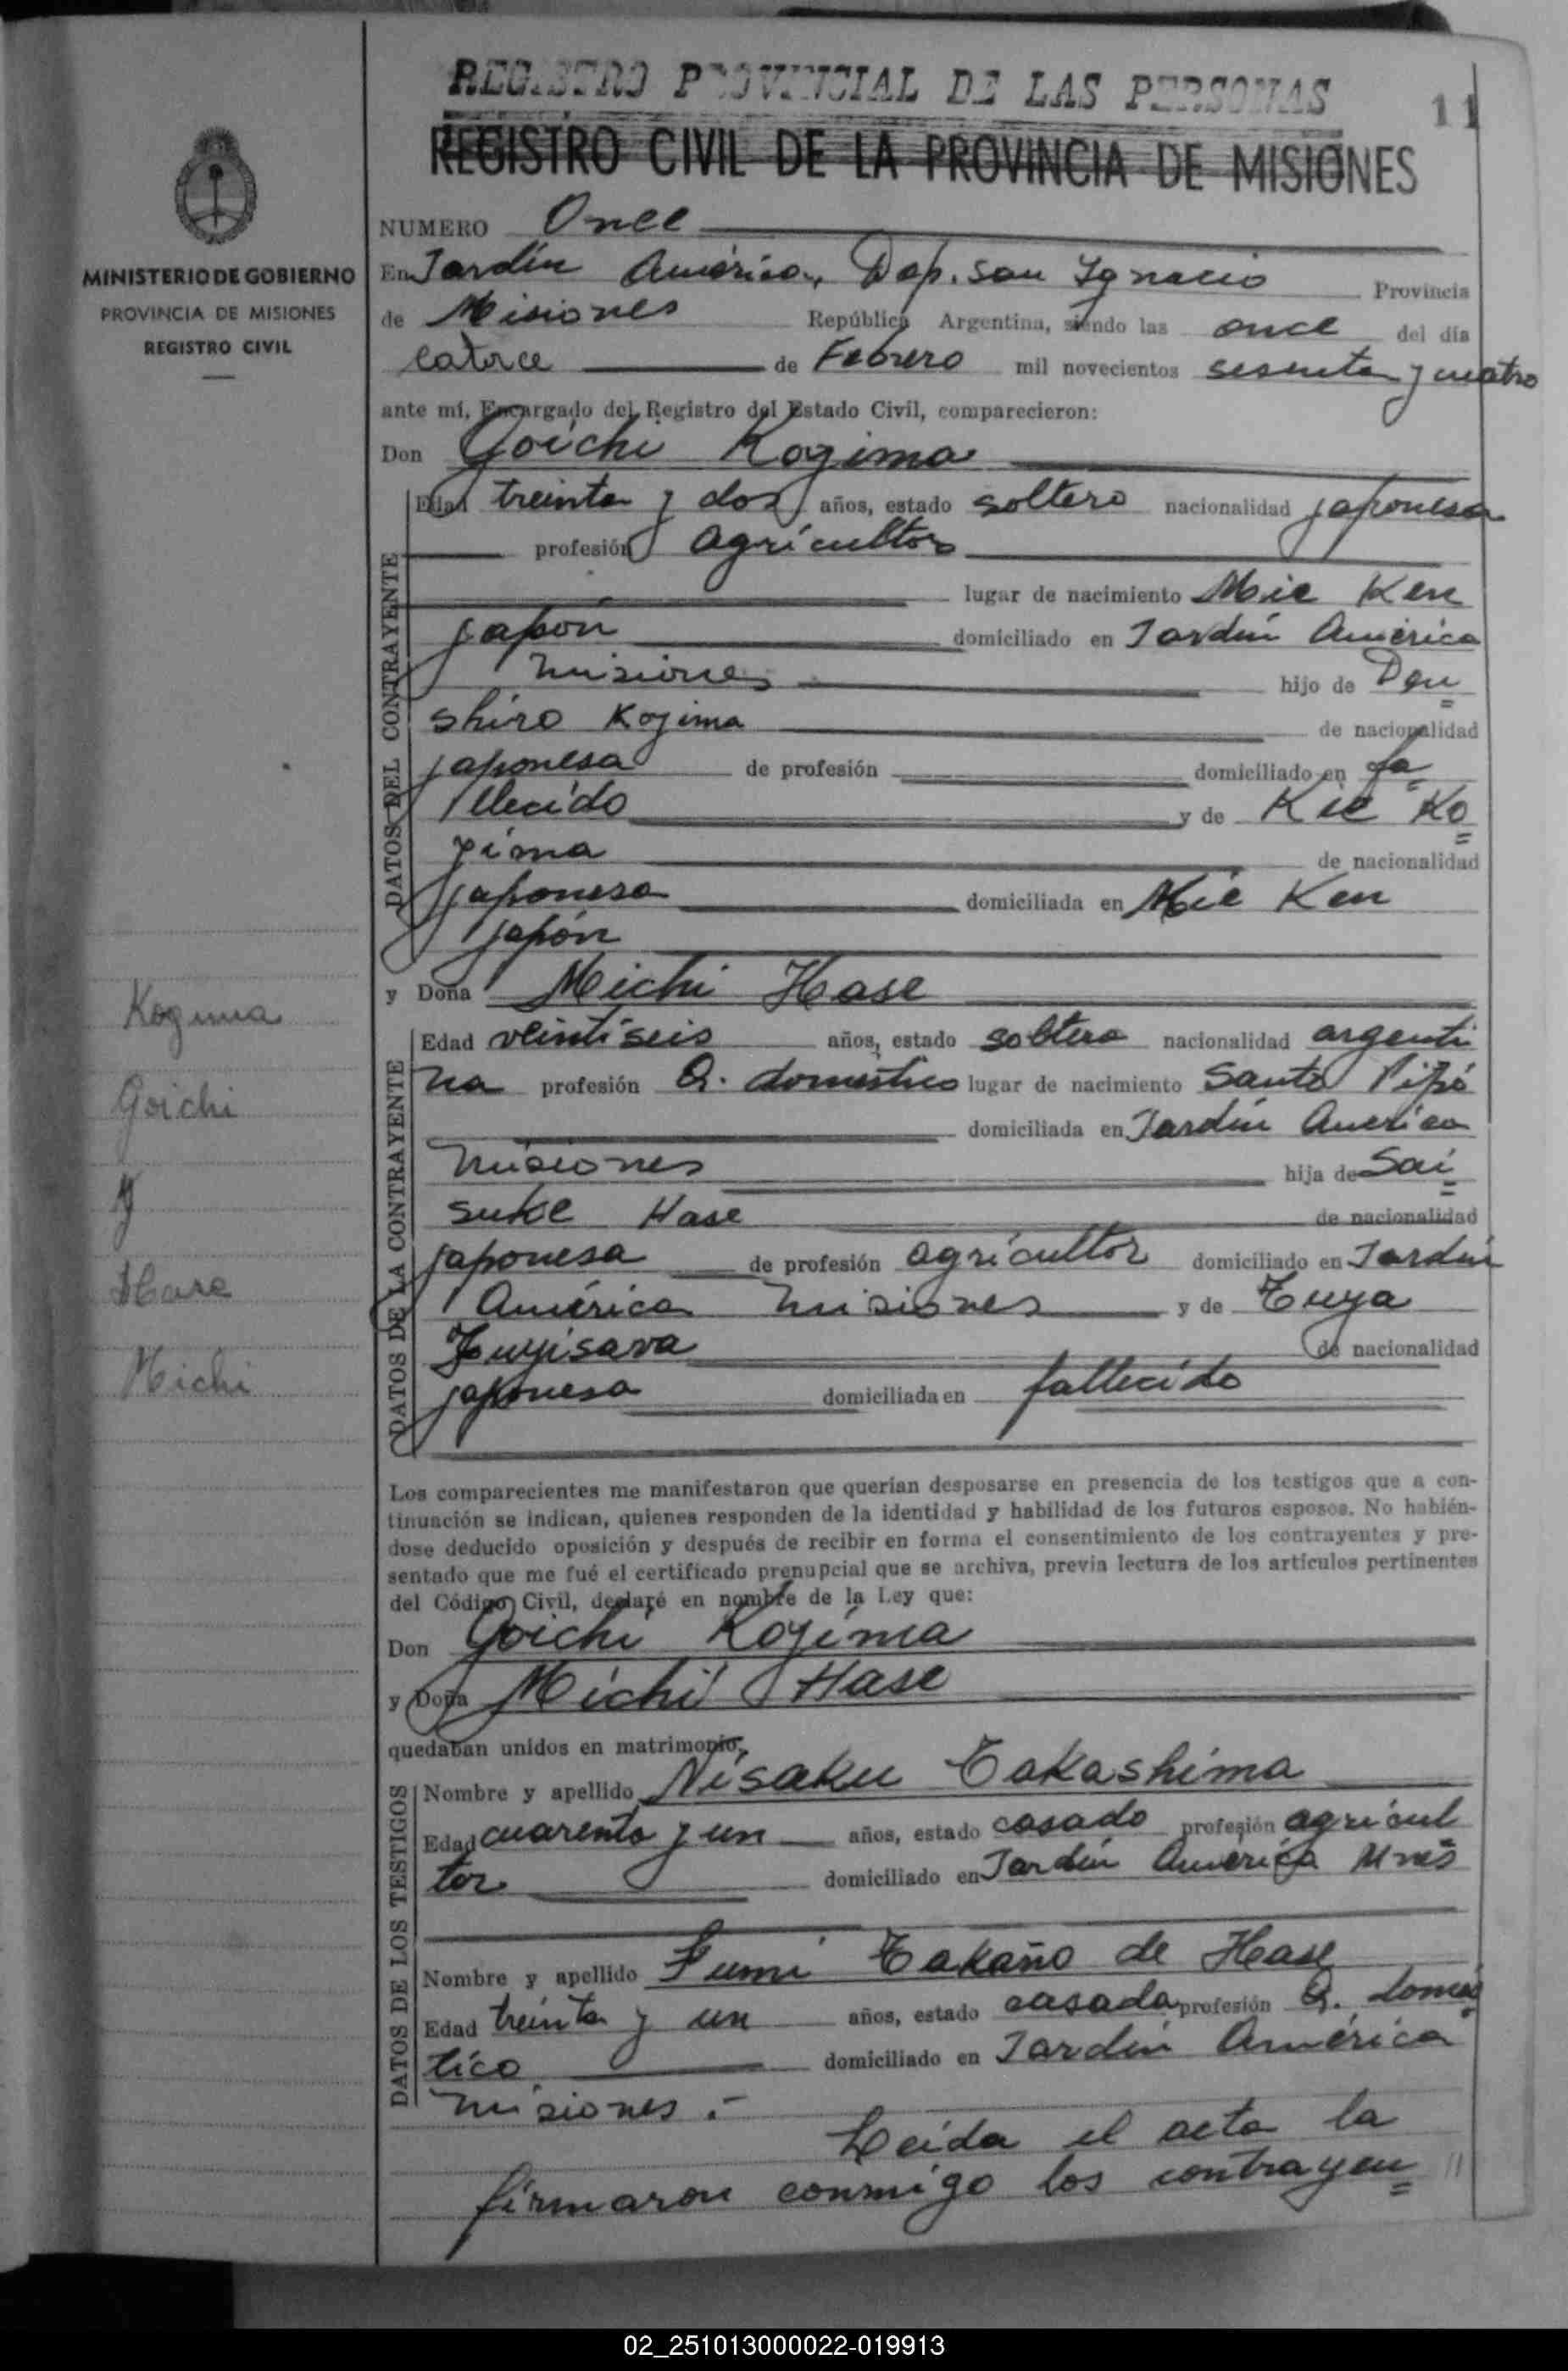 REGISTRO PROVINCIAL DE LAS PERSONAS
11
REGISTRO CIVIL DE LA PROVINCIA DE MISIONES
MINISTERIO DE GOBIERNO
PROVINCIA DE MISIONES
REGISTRO CIVIL
NUMERO Once
En Jardín América, Dep. San Ignacio Provincia
de Misiones República Argentina, siendo las once del día
catorce de Febrero mil novecientos sesenta y cuatro
ante mí, Encargado del Registro del Estado Civil, comparecieron:
Don Goichi Kojima
DATOS DEL CONTRAYENTE
Edad treinta y dos años, estado soltero nacionalidad japonesa
profesión agricultor
lugar de nacimiento Mie Ken
japón domiciliado en Jardín América
Misiones hijo de Den=
shiro Kojima de nacionalidad
japonesa de profesión domiciliado en fa=
llecido y de Kie Ko=
jima de nacionalidad
japonesa domiciliada en Mie Ken
japón
y Doña Michi Hase
Kojima
Goichi
y
Hase
Michi
DATOS DE LA CONTRAYENTE
Edad veintiseis años, estado soltera nacionalidad argenti
na profesión Q. domestico lugar de nacimiento Santo Pipó
domiciliada en Jardín América
Misiones hija de Sai=
suke Hase de nacionalidad
japonesa de profesión agricultor domiciliado en Jardín
América Misiones y de Tuya
Fuyisava de nacionalidad
japonesa domiciliada en fallecida
Los comparecientes me manifestaron que querían desposarse en presencia de los testigos que a con-
tinuación se indican, quienes responden de la identidad y habilidad de los futuros esposos. No habién-
dose deducido oposición y después de recibir en forma el consentimiento de los contrayentes y pre-
sentado que me fué el certificado prenupcial que se archiva, previa lectura de los artículos pertinentes
del Código Civil, declaré en nombre de la Ley que:
Don Goichi Kojima
y Doña Michi Hase
quedaban unidos en matrimonio,
DATOS DE LOS TESTIGOS
Nombre y apellido Nisaku Takashima
Edad cuarenta y un años, estado casado profesión agricul
tor domiciliado en Jardín América Mnes
Nombre y apellido Fumi Takaño de Hase
Edad treinta y un años, estado casada profesión Q. domés
tico domiciliado en Jardín América
Misiones.-
Leída el acta la
firmaron conmigo los contrayen=
02_251013000022-019913